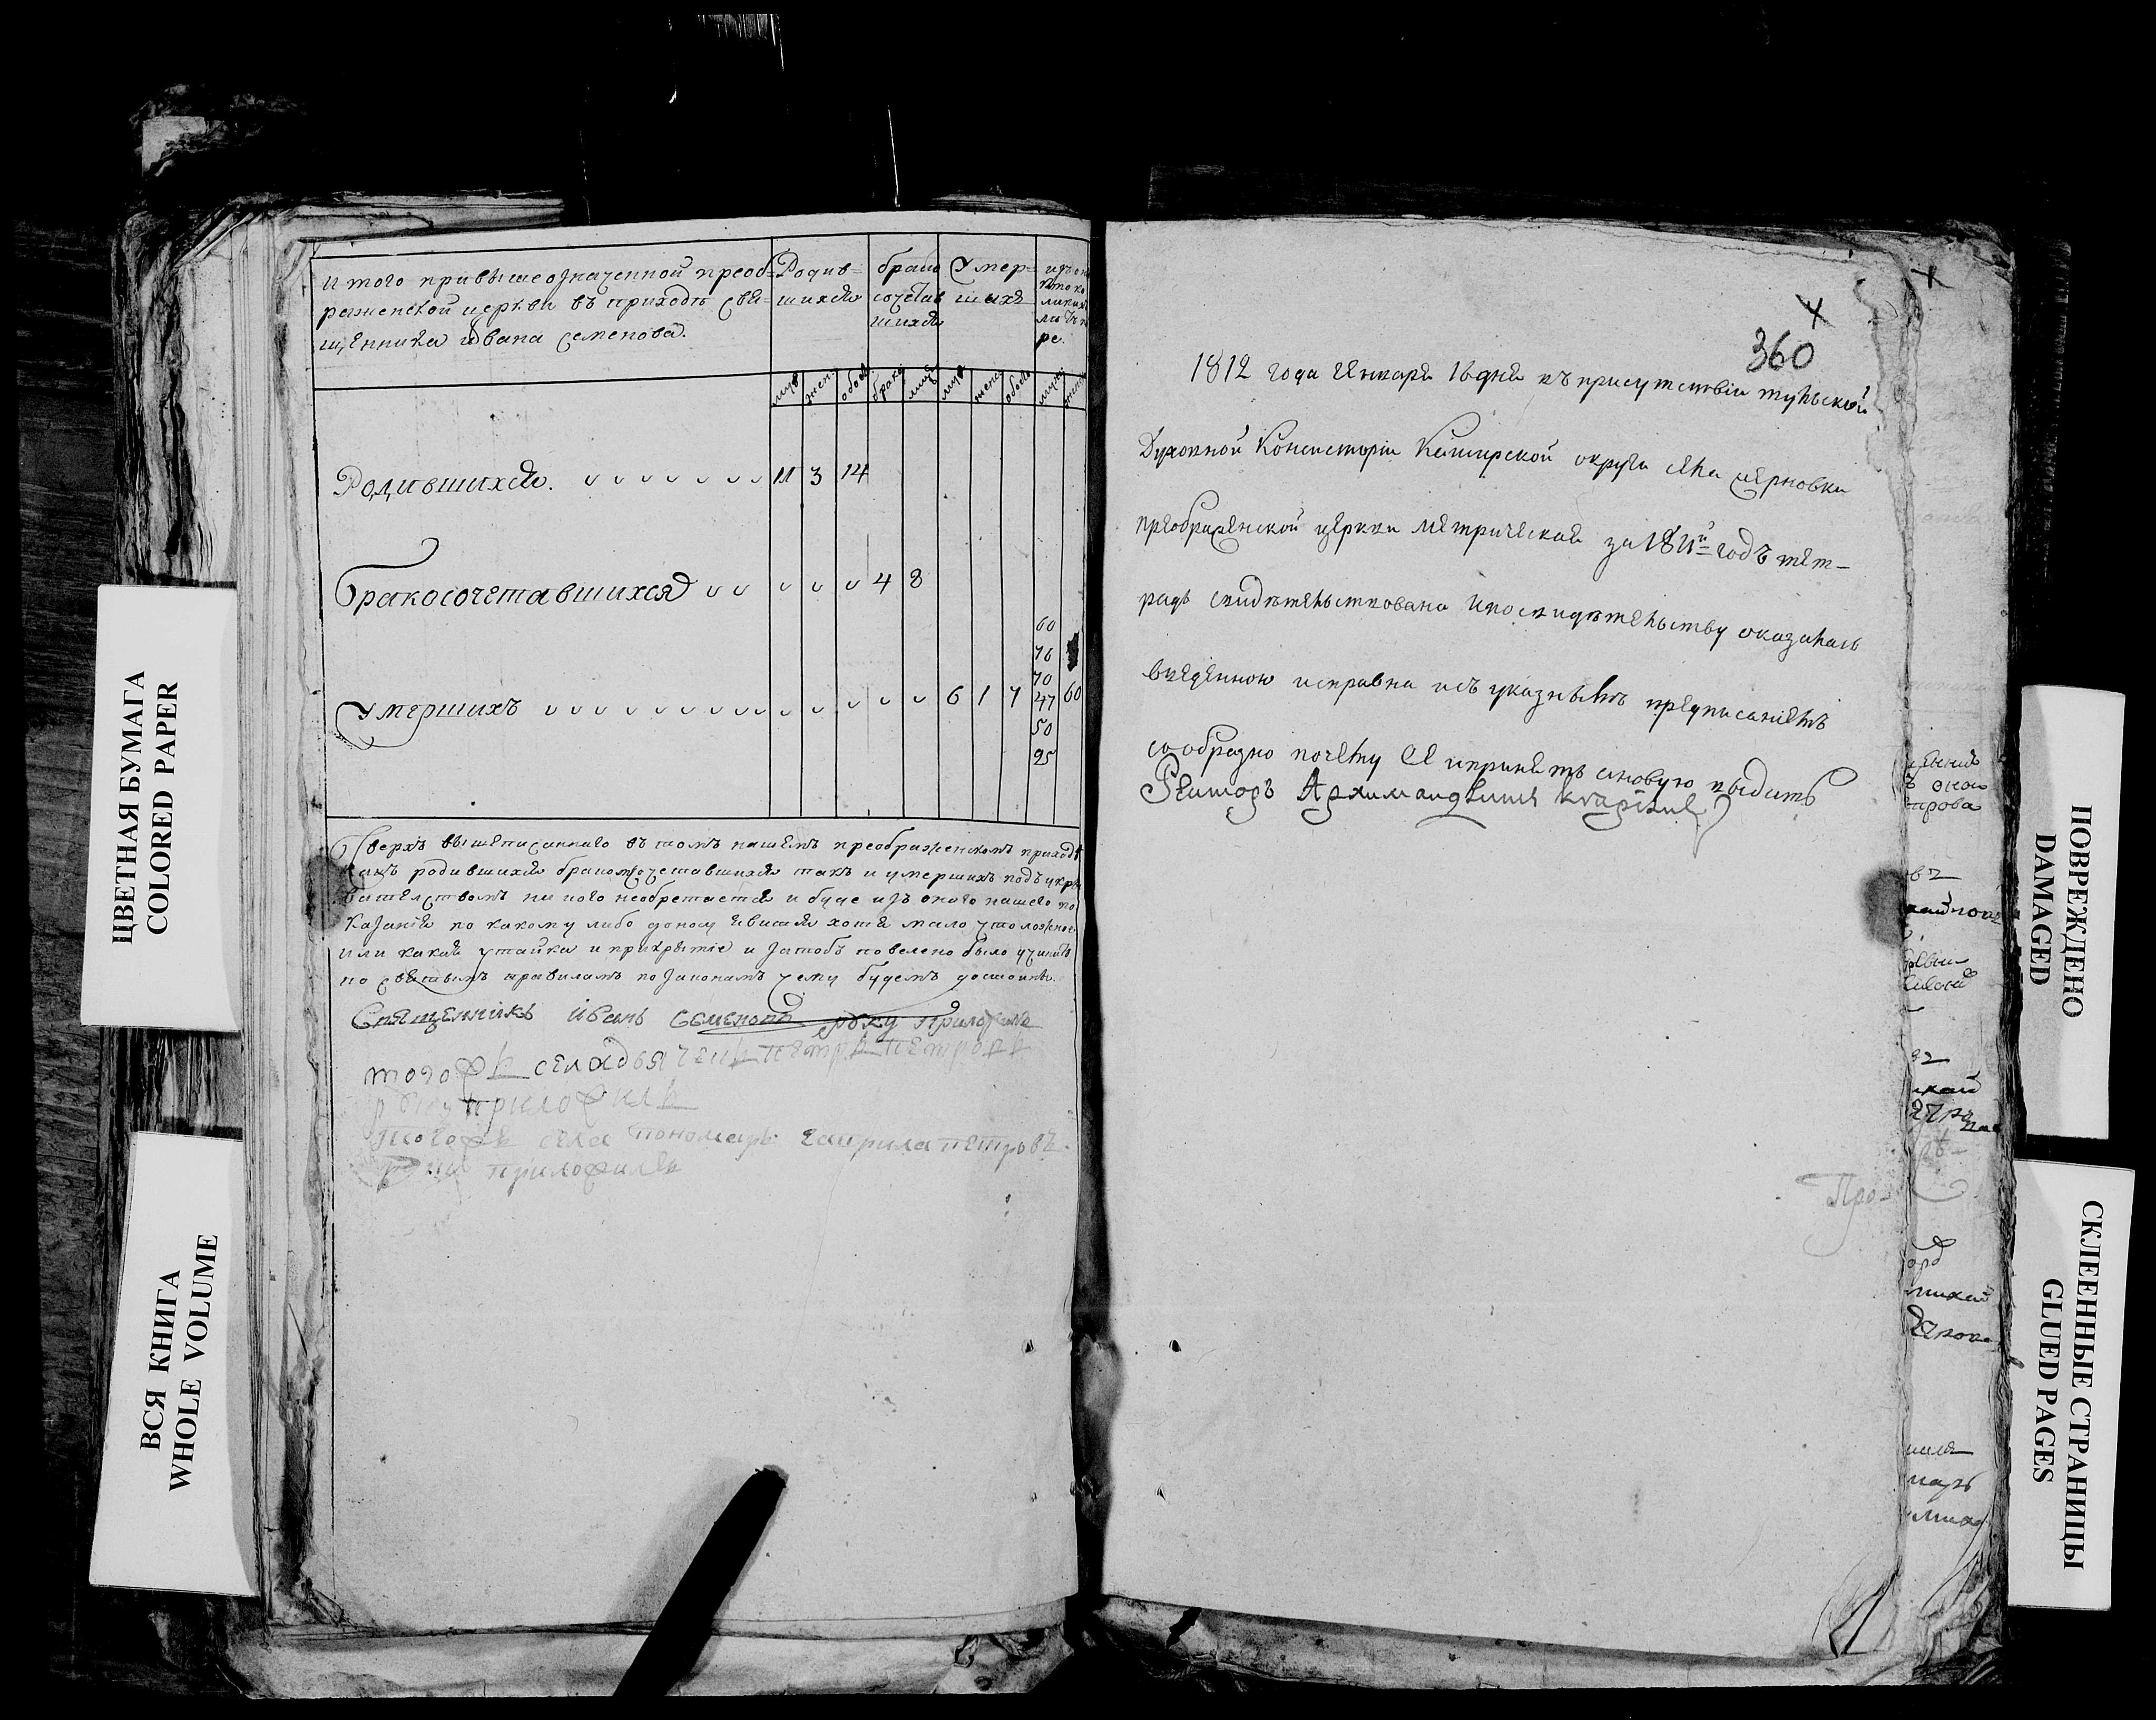 итого привышеозначенной преоб=
раженской церькви въ приходѣ свя=
щенника Ивана Семенова.
Родив=
шихся
брако
сочетав
шихся
Умер=
шихъ
ре.
муж
жен
обое
брако
муж
жен
обое
Родившихся. 11 3 14
Бракосочетавшихся 4 8
Умершихъ 6 1 7
60
70
70
47
50
95
60
Сверхъ вышеписаннаго въ томъ нашемъ преображенскомъ приходѣ
какъ родившихся бракомсочетавшихся такъ и умершихъ подъ укры
вательствомъ ни кого необретается и буде изъ оного нашего по
казания по какому либо доносу явится хотя мало что ложное
или какая утайка и прикрытіе и затобъ повелено было учинить
по святымъ правиламъ по законамъ чему будемъ достойны.
Священникъ Иванъ Семеновъ руку приложилъ
тогожъ села дьячекъ Петръ Петровъ
руку приложилъ
Тогожъ села пономарь Гаврила Петровъ
руку приложилъ
360
1812 года Генваря 16 дня въ присутствіи тульской
Духовной Консисторіи Каширской округи села Черновки
преображенской церкви метрическая за 1811й годъ тет-
радь свидѣтельствована и по свидѣтельству оказалась
введенною исправна и съ указнымъ предписаніемъ
сообразно почему ее и принять а новую выдать
Ректоръ Архимандритъ
Про-
ЦВЕТНАЯ БУМАГА
COLORED PAPER
ВСЯ КНИГА
WHOLE VOLUME
ПОВРЕЖДЕНО
DAMAGED
СКЛЕЕННЫЕ СТРАНИЦЫ
GLUED PAGES